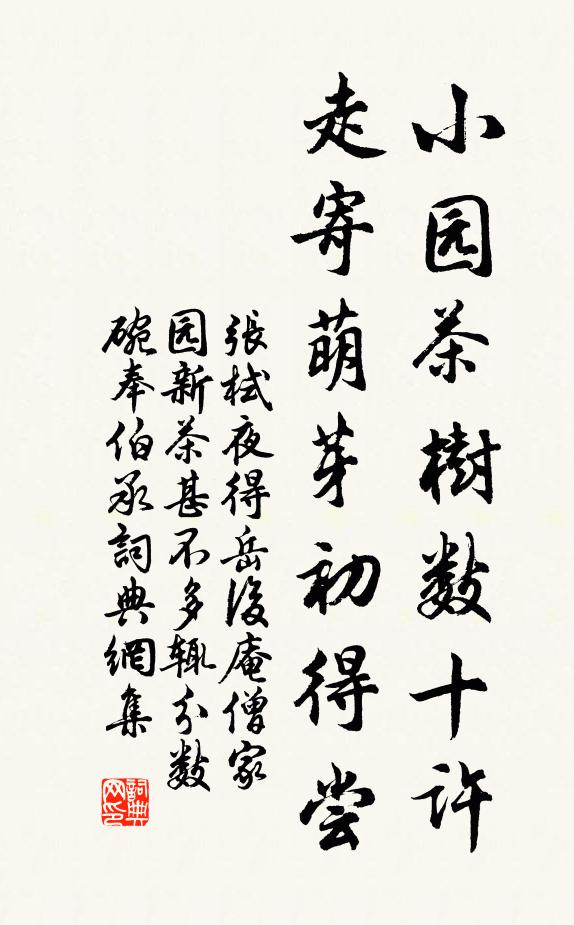 小园茶樹数十許
走寄萌芽初得尝
張栻夜得岳後庵僧家
园新茶甚不多辄分数
碗奉伯承詞典網集
詞典
网印